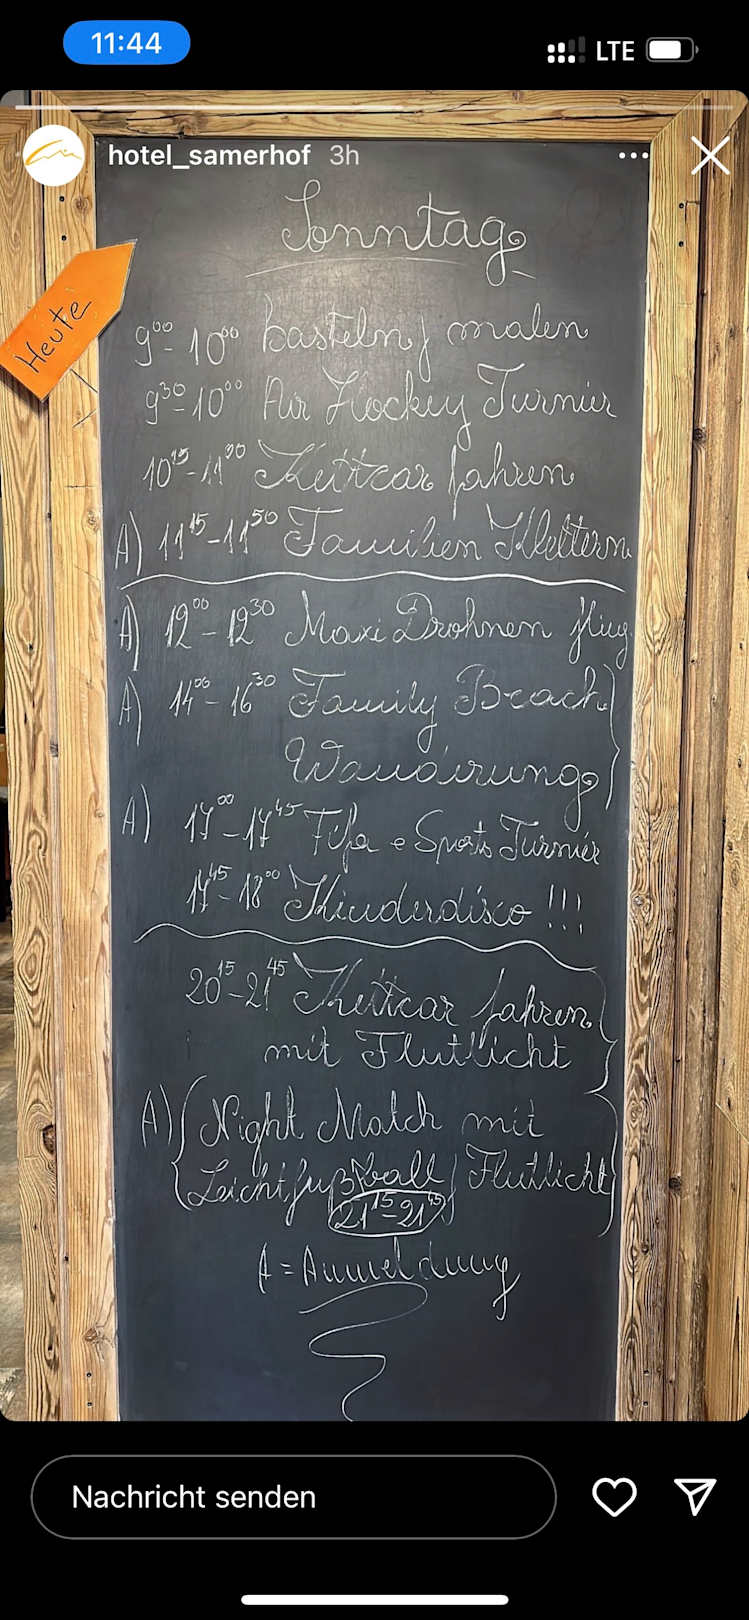 11:44
LTE
hotel_samerhof 3h
Sonntag
Heute
9⁰⁰-10⁰⁰ basteln / malen
9³⁰-10⁰⁰ Air Hockey Turnier
10¹⁵-11⁰⁰ Kettcar fahren
A) 11¹⁵-11⁵⁰ Familien Klettern
A) 12⁰⁰-12³⁰ Maxi Drohnen flug
A) 14⁰⁰-16³⁰ Family Beach
Wanderung
A) 17⁰⁰-17⁴⁵ Fifa e Sports Turnier
17⁴⁵-18⁰⁰ Kinderdisco !!!
20¹⁵-21⁴⁵ Kettcar fahren
mit Flutlicht
A) Night Match mit
Leichtfußball / Flutlicht
21¹⁵-21⁴⁵
A = Anmeldung
Nachricht senden